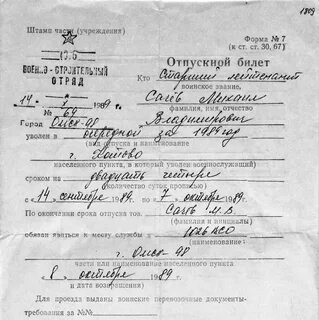 1309
Штамп части (учреждения)
Форма № 7
(к ст. ст. 30, 67)
ВОЕННО-СТРОИТЕЛЬНЫЙ
ОТРЯД
Отпускной билет
Кто Старший лейтенант
воинское звание,
14 1989 г.
Сагъ Михаил
фамилия, имя, отчество
№ 69
Владимирович
Город Омск-98
уволен в очередной за 1989 год
(вид отпуска и наименование
г.
населенного пункта, в который уволен военнослужащий)
сроком на двадцать четыре
(количество суток прописью)
с 14 сентября 1989г. по 7 октября 1989г.
По окончании срока отпуска тов. М. В.
(фамилия и инициалы)
обязан явиться к месту службы
(наименование:
г. Омск-98
или наименование населенного пункта)
8 октября 1989 г.
и дата возвращения)
Для проезда выданы воинские перевозочные документы-
требования за №№